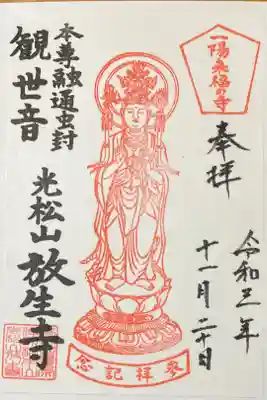 一陽来福の寺
奉拝
令和三年
十一月二十日
本尊融通虫封
観世音
光松山放生寺
参拝記念